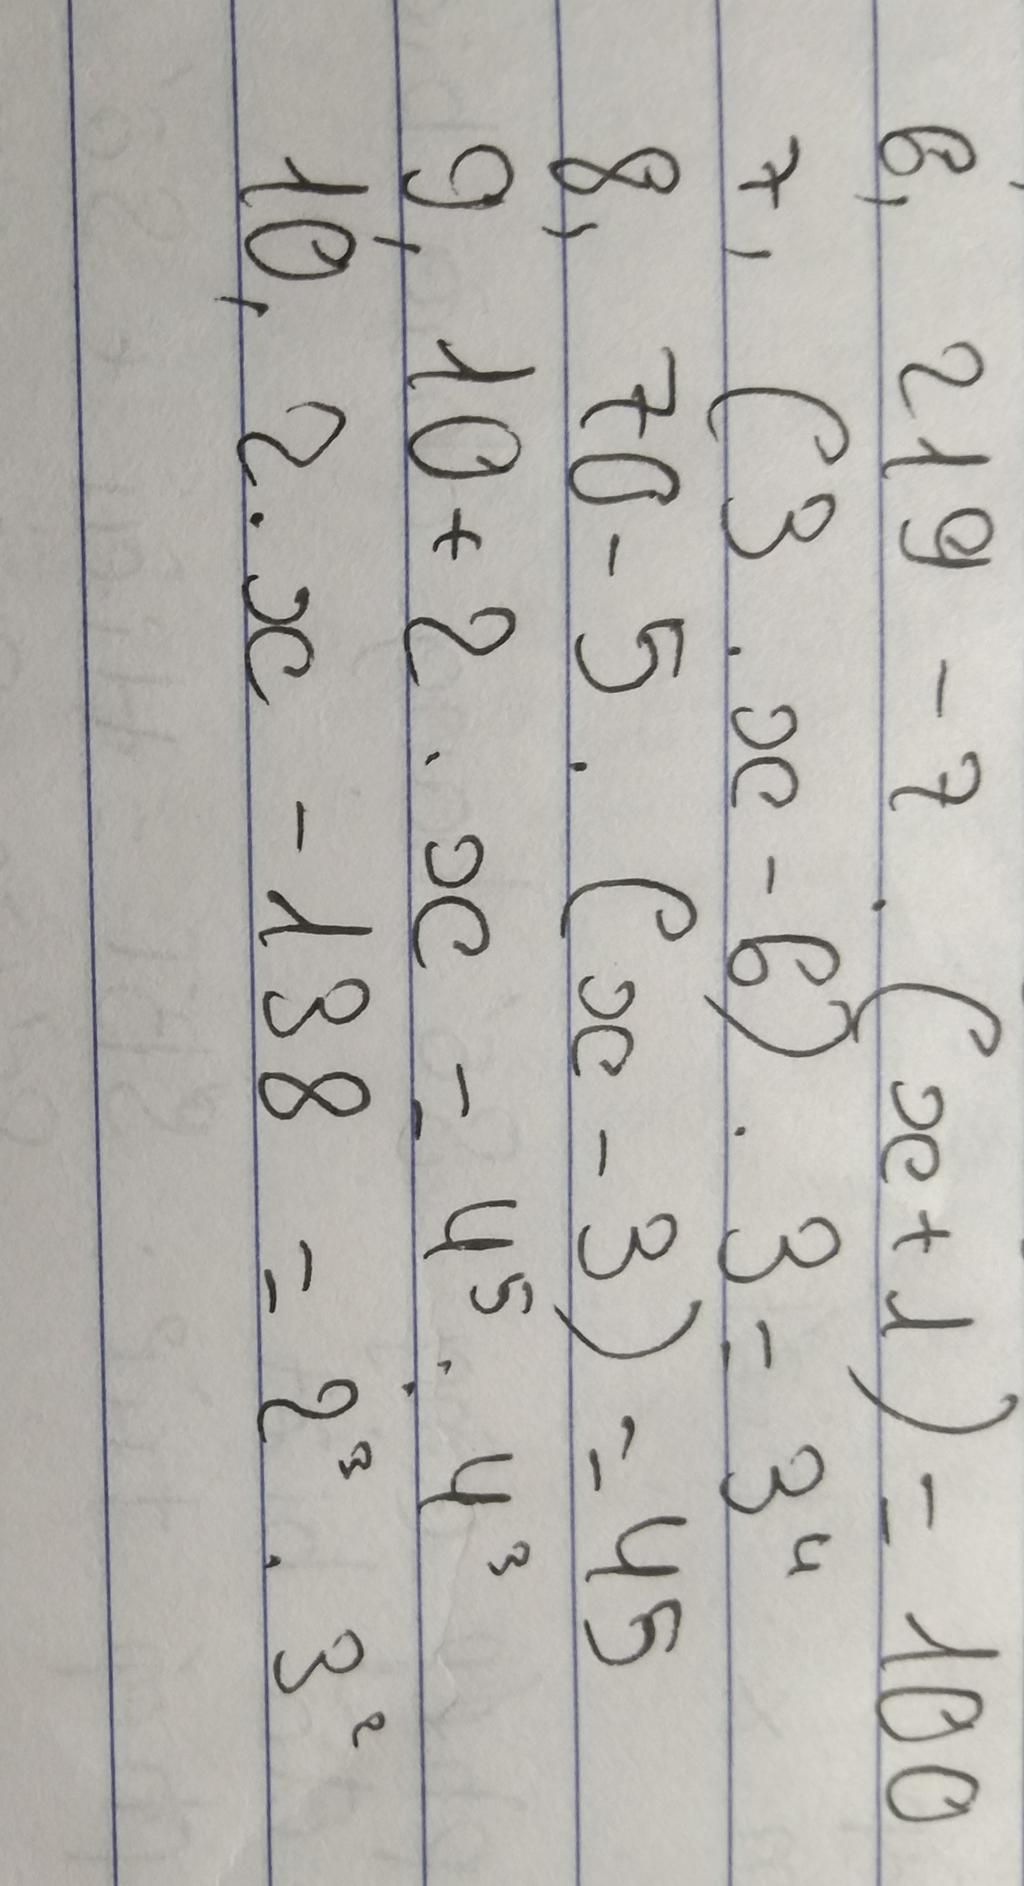 6, 219 - 7 . (x + 1) = 100
7, (3 . x - 6) . 3 = 3⁴
8, 70 - 5 . (x - 3) = 45
9, 10 + 2 . x = 4⁵ : 4³
10, 2 . x - 138 = 2³ . 3²